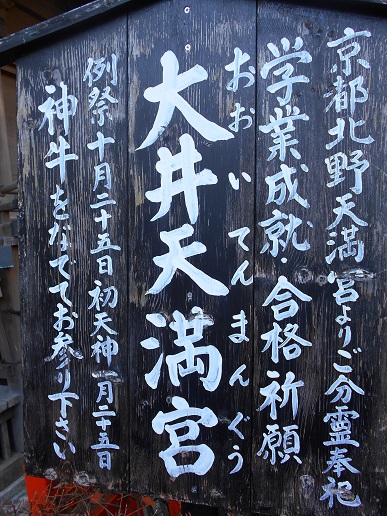 京都北野天満宮よりご分霊奉祀
学業成就・合格祈願
おおいてんまんぐう
大井天満宮
例祭十月二十五日初天神一月二十五日
神牛をなでてお参り下さい